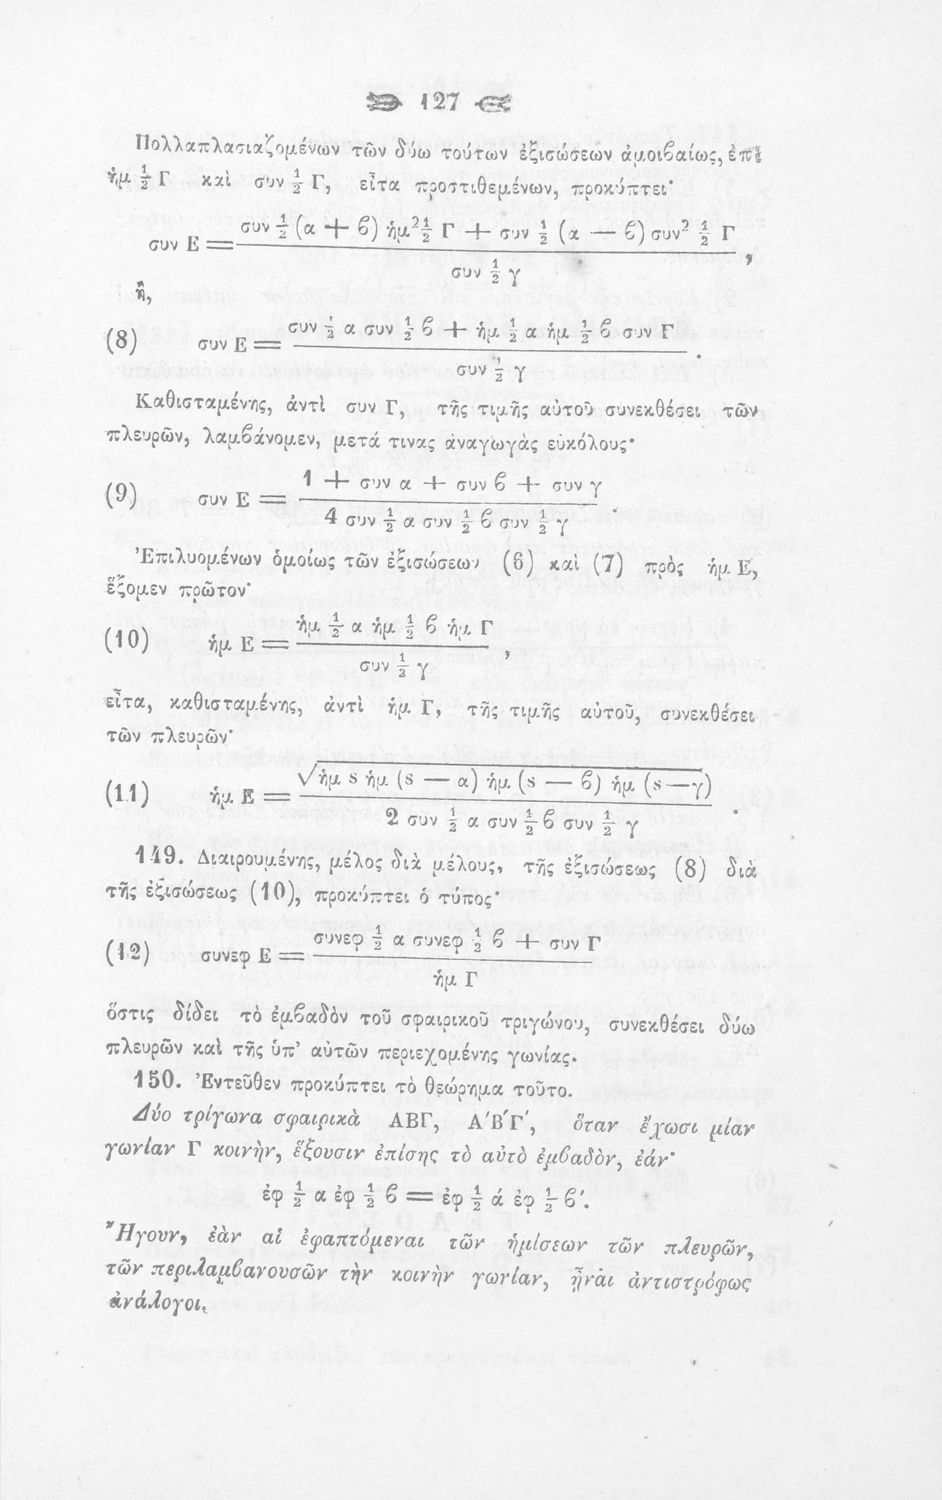 127
Πολλαπλασιαζομένων τῶν δύω τούτων ἐξισώσεων ἀμοιβαίως, ἐπὶ
ἡμ ½ Γ καὶ συν ½ Γ, εἶτα προστιθεμένων, προκύπτει·
συν Ε = (συν ½ (α + ϐ) ἡμ² ½ Γ + συν ½ (α — ϐ) συν² ½ Γ) / (συν ½ γ),
ἢ,
(8) συν Ε = (συν ½ α συν ½ ϐ + ἡμ ½ α ἡμ ½ ϐ συν Γ) / (συν ½ γ).
Καθισταμένης, ἀντὶ συν Γ, τῆς τιμῆς αὐτοῦ συνεκθέσει τῶν
πλευρῶν, λαμϐάνομεν, μετά τινας ἀναγωγὰς εὐκόλους·
(9) συν Ε = (1 + συν α + συν ϐ + συν γ) / (4 συν ½ α συν ½ ϐ συν ½ γ).
Ἐπιλυομένων ὁμοίως τῶν ἐξισώσεων (6) καὶ (7) πρὸς ἡμ Ε,
ἕξομεν πρῶτον·
(10) ἡμ Ε = (ἡμ ½ α ἡμ ½ ϐ ἡμ Γ) / (συν ½ γ),
εἶτα, καθισταμένης, ἀντὶ ἡμ Γ, τῆς τιμῆς αὐτοῦ, συνεκθέσει
τῶν πλευρῶν·
(11) ἡμ Ε = √(ἡμ s ἡμ (s — α) ἡμ (s — ϐ) ἡμ (s — γ)) / (2 συν ½ α συν ½ ϐ συν ½ γ).
149. Διαιρουμένης, μέλος διὰ μέλους, τῆς ἐξισώσεως (8) διὰ
τῆς ἐξισώσεως (10), προκύπτει ὁ τύπος·
(12) συνεφ Ε = (συνεφ ½ α συνεφ ½ ϐ + συν Γ) / (ἡμ Γ)
ὅστις δίδει τὸ ἐμϐαδὸν τοῦ σφαιρικοῦ τριγώνου, συνεκθέσει δύω
πλευρῶν καὶ τῆς ὑπ' αὐτῶν περιεχομένης γωνίας.
150. Ἐντεῦθεν προκύπτει τὸ θεώρημα τοῦτο.
Δύο τρίγωνα σφαιρικὰ ΑΒΓ, Α΄Β΄Γ΄, ὅταν ἔχωσι μίαν
γωνίαν Γ κοινὴν, ἕξουσιν ἐπίσης τὸ αὐτὸ ἐμϐαδὸν, ἐάν·
ἐφ ½ α ἐφ ½ ϐ = ἐφ ½ ά ἐφ ½ ϐ΄.
Ἤγουν, ἐὰν αἱ ἐφαπτόμεναι τῶν ἡμίσεων τῶν πλευρῶν,
τῶν περιλαμϐανουσῶν τὴν κοινὴν γωνίαν, ἦναι ἀντιστρόφως
ἀνάλογοι.